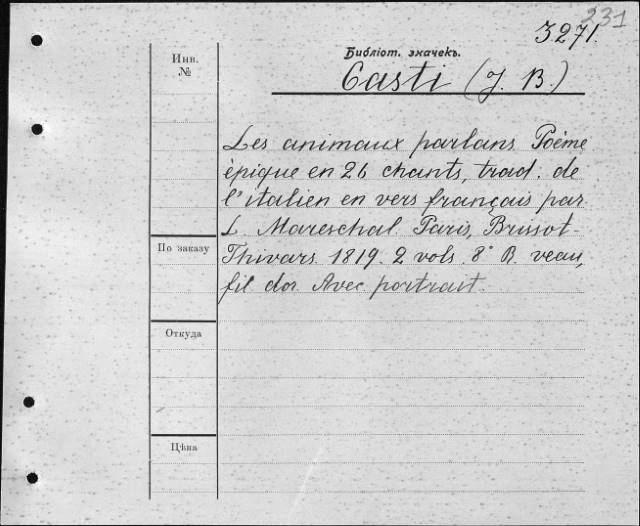 231
3271.
Библіот. значекъ.
Casti (J. B.)
Инв.
№
Les animaux parlans. Poème
épique en 26 chants, trad. de
l'italien en vers français par
L. Mareschal. Paris, Brissot-
Thivars. 1819. 2 vols. 8° R. veau,
fil dor. Avec portrait.
По заказу
Откуда
Цѣна